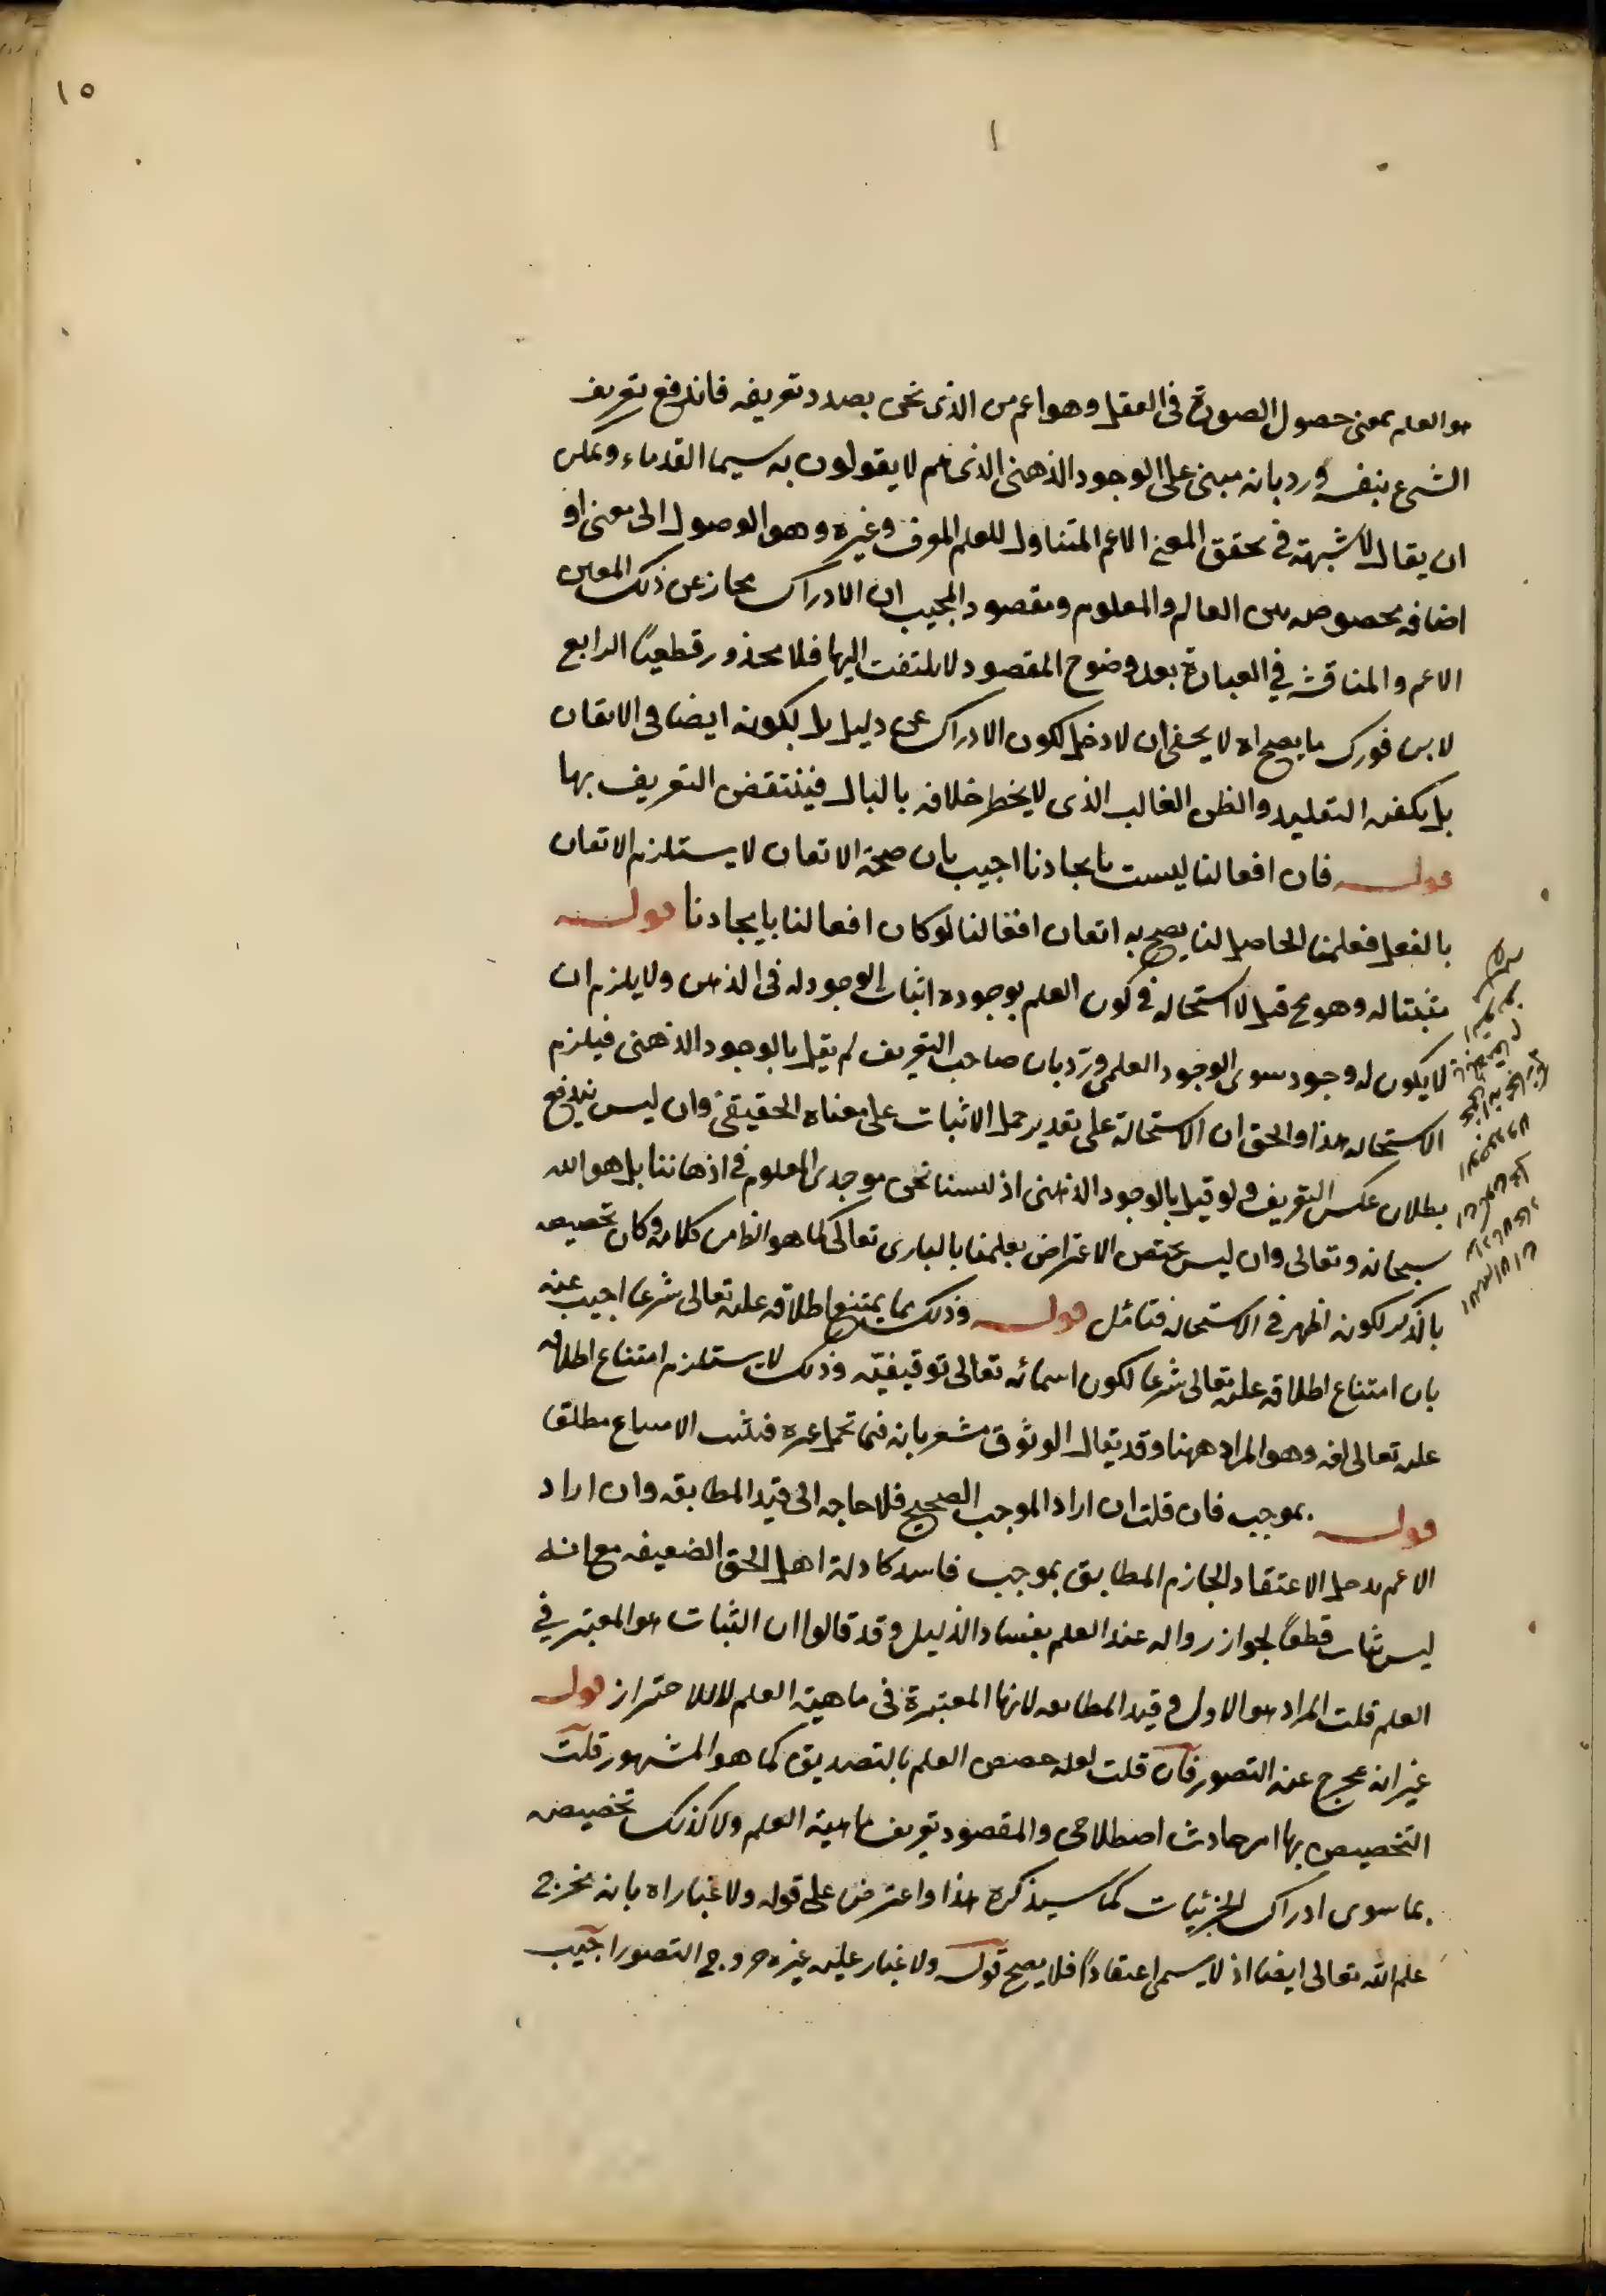 ١٥
١
هو العلم بمعنى حصول الصورة في العقل وهو اعم من الذى نحن بصدد تعريفه فاندفع تعريف
الشيء بنفسه ورد بانه مبنى على الوجود الذهنى الذى هم لا يقولون به سيما القدماء ويمكن
ان يقال لا شبهة في تحقق المعنى الاعم المتناول للعلم المعرف وغيره وهو الوصول الى معنى او
اضافة مخصوصه بين العالم والمعلوم ومقصود المجيب ان الادراك مجاز عن ذلك المعنى
الاعم والمناقشه في العبارة بعد وضوح المقصود لا يلتفت اليها فلا محذور قطعيا الرابع
لابن فورك ما يصح اه لا يخفى ان لا دخل لكون الادراك عن دليل بل لكونه ايضا في الاتقان
بل يكفيه التقليد والظن الغالب الذى لا يخطر خلافه بالبال فينتقض التعريف بها
قوله فان افعالنا ليست بايجادنا اجيب بان صحة الاتقان لا يستلزم الاتقان
بالفعل فعلمنا الحاصل لنا يصح به اتقان افعالنا لو كان افعالنا بايجادنا قوله
مثبتا له وهو مح قيل لا استحاله في كون العلم بوجوده اثبات الوجود له في الذهن ولا يلزم ان
لا يكون له وجود سوى الوجود العلمى ورد بان صاحب التعريف لم يقل بالوجود الذهنى فيلزم
الاستحاله هذا والحق ان الاستحالة على تقدير حمل الاثبات على معناه الحقيقى وان ليس يندفع
بطلان عكس التعريف ولو قيل بالوجود الذهنى اذ لسنا نحن موجدى المعلوم في اذهاننا بل هو الله
سبحانه وتعالى وان ليس يختص الاعتراض بعلمنا بالبارى تعالى كما هو الظ من كلامه وكان تخصيصه
بالذكر لكونه اظهر في الاستحاله فتامل قوله وذلك مما يمتنع اطلاقه عليه تعالى شرعا اجيب عنه
بان امتناع اطلاقه عليه تعالى شرعا لكون اسمائه تعالى توقيفيّه وذلك لا يستلزم امتناع اطلاقه
عليه تعالى لغه وهو المراد ههنا وقد يقال الوثوق مشعر بانه فيما تحمل غيره فيثبت الامتناع مطلقا
قوله بموجب فان قلت ان اراد الموجب الصحيح فلا حاجه الى قيد المطابقه وان اراد
الاعم يدخل الاعتقاد الجازم المطابق بموجب فاسد كادلة اهل الحق الضعيفه مع انه
ليس بثابت قطعا لجواز زواله عند العلم بفساد الدليل وقد قالوا ان الثبات هو المعتبر في
العلم قلت المراد هو الاول وقيد المطابقه لانها المعتبرة في ماهية العلم لا للاحتراز قوله
غير انه يخرج عنه التصور فان قلت لعله خصص العلم بالتصديق كما هو المشهور قلت
التخصيص بها امر حادث اصطلاحى والمقصود تعريف ماهية العلم ولا كذلك تخصيصه
بما سوى ادراك الجزئيات كما سيذكره هذا واعترض على قوله ولا غبار اه بانه يخرج
علم الله تعالى ايضا اذ لا يسمى اعتقادا فلا يصح قوله ولا غبار عليه غير خروج التصور اجيب